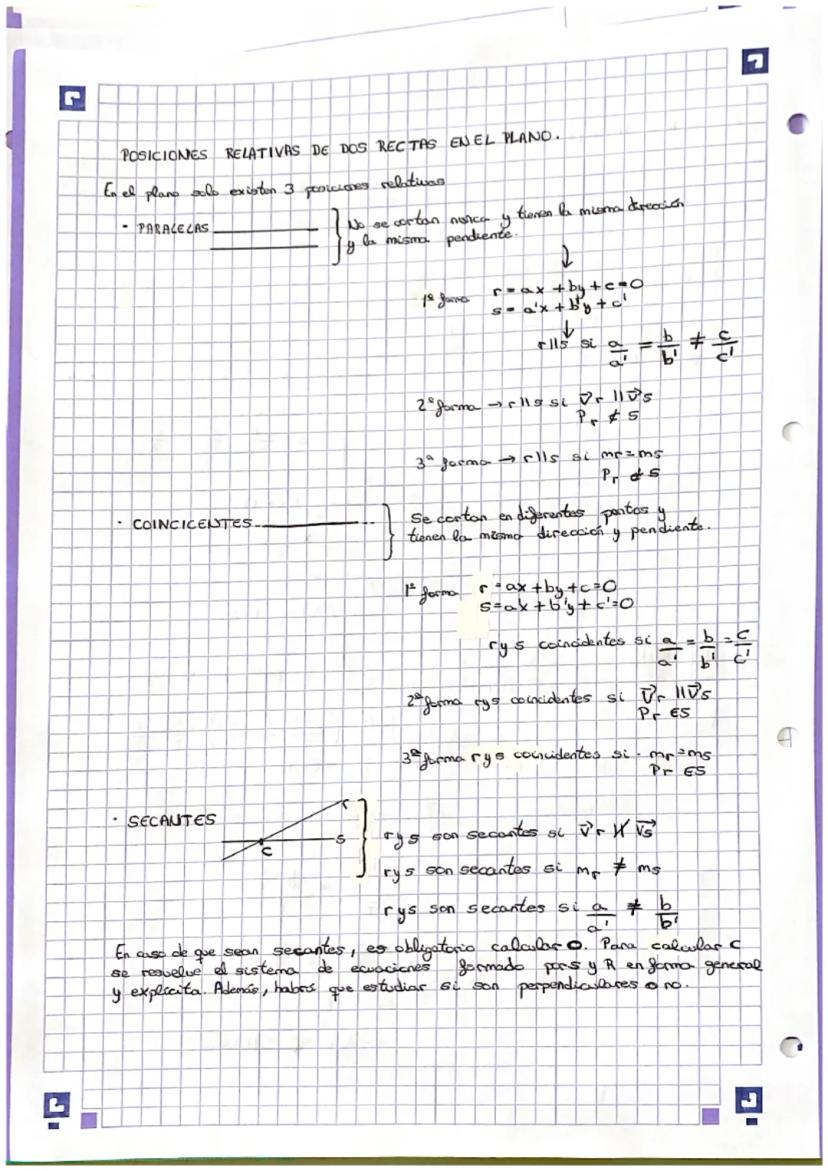 POSICIONES RELATIVAS DE DOS RECTAS EN EL PLANO.
En el plano solo existen 3 posiciones relativas
· PARALELAS
No se cortan nunca y tienen la misma dirección
y la misma pendiente.
↓
1ª forma r = ax + by + c = 0
s = a'x + b'y + c'
↓
r∥s si a/a' = b/b' ≠ c/c'
2ª forma → r∥s si v⃗r ∥ v⃗s
Pr ∉ S
3ª forma → r∥s si mr = ms
Pr ∉ S
· COINCICENTES
Se cortan en diferentes puntos y
tienen la misma dirección y pendiente.
1ª forma r = ax + by + c = 0
s = a'x + b'y + c' = 0
r y s coincidentes si a/a' = b/b' = c/c'
2ª forma r y s coincidentes si v⃗r ∥ v⃗s
Pr ∈ S
3ª forma r y s coincidentes si · mr = ms
Pr ∈ S
· SECANTES
r
s
c
r y s son secantes si v⃗r ∦ v⃗s
r y s son secantes si mr ≠ ms
r y s son secantes si a/a' ≠ b/b'
En caso de que sean secantes, es obligatorio calcular O. Para calcular C
se resuelve el sistema de ecuaciones formado por s y R en forma general
y explícita. Además, habrá que estudiar si son perpendiculares o no.